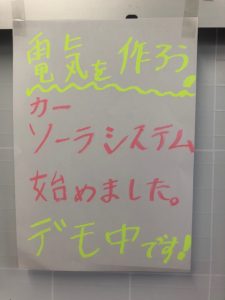 電気を作ろう!
カー
ソーラシステム
始めました。
デモ中です!